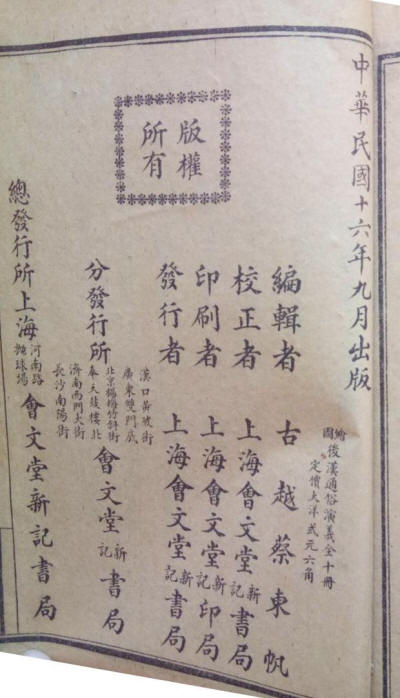 中華民國十六年九月出版
版權
所有
繪圖後漢通俗演義全十冊
定價大洋弍元六角
編輯者 古越蔡東帆
校正者 上海會文堂新記書局
印刷者 上海會文堂新記印局
發行者 上海會文堂新記書局
分發行所
漢口黃陂街
廣東雙門底
北京楊梅竹斜街
奉天鼓樓北
濟南西門大街
長沙南陽街
會文堂新記書局
總發行所上海河南路拋球場會文堂新記書局